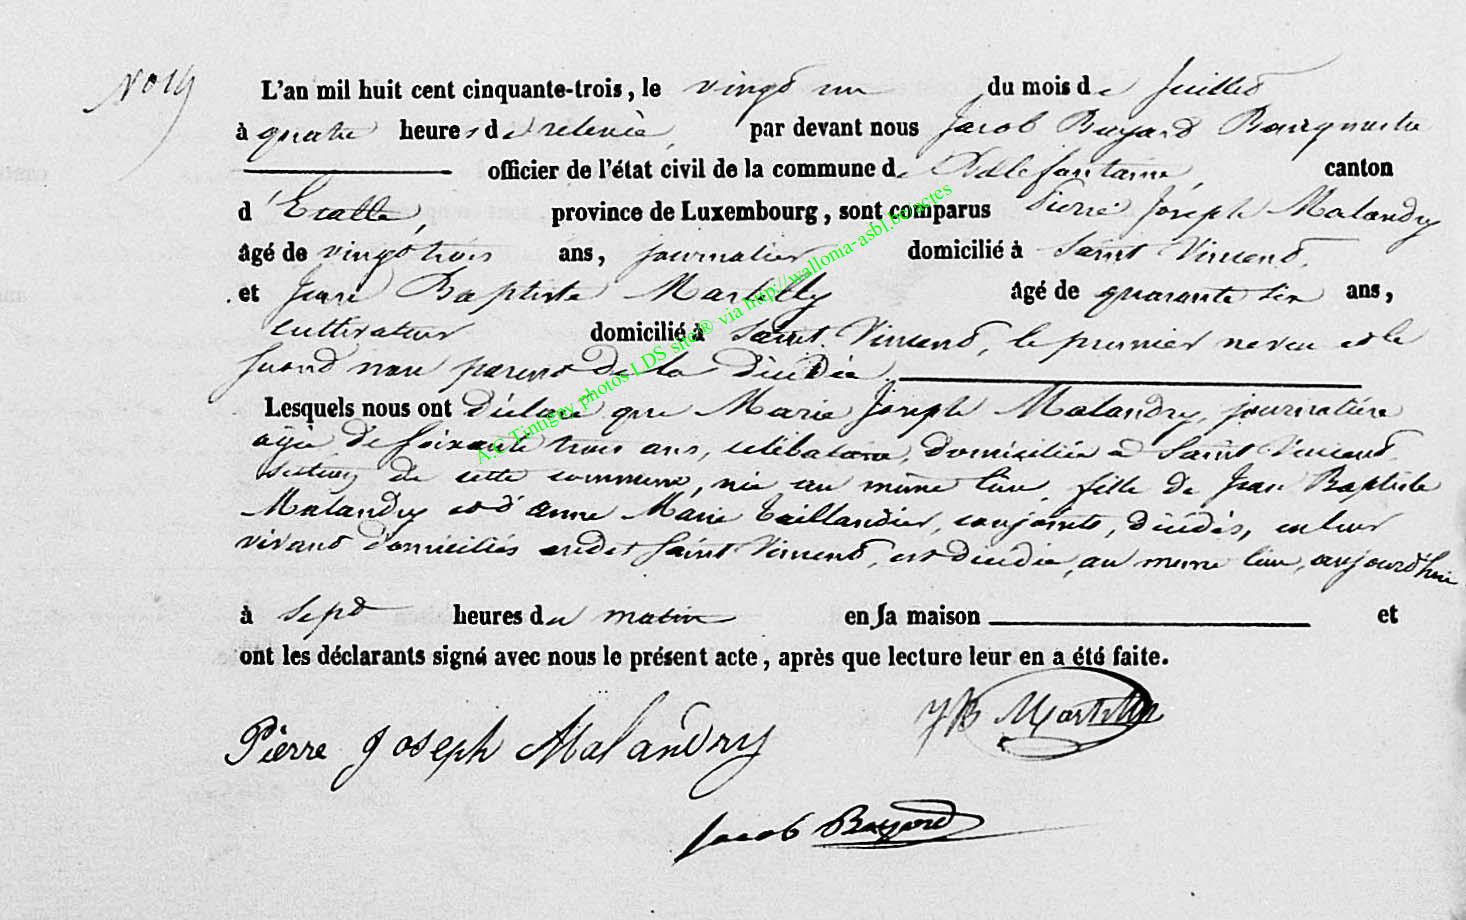 N° 19
L'an mil huit cent cinquante-trois, le vingt un du mois de Juillet
à quatre heures de relevée, par devant nous Jacob Bayard Bourgmestre
officier de l'état civil de la commune de Bellefontaine, canton
d'Etalle, province de Luxembourg, sont comparus Pierre Joseph Malandry
âgé de vingt trois ans, journalier domicilié à Saint Vincent,
et Jean Baptiste Martilly âgé de quarante six ans,
cultivateur domicilié à Saint Vincent, le premier neveu et le
second non parent de la décédée
Lesquels nous ont déclaré que Marie Joseph Malandry, journalière
agée de soixante trois ans, célibataire, domiciliée à Saint Vincent
section de cette commune, née au même lieu, fille de Jean Baptiste
Malandry et d'anne Marie Taillandier, conjoints, décédés, en leur
vivant domiciliés audit Saint Vincent, est décédée, au même lieu, aujourd'hui
à sept heures du matin en sa maison et
ont les déclarants signé avec nous le présent acte, après que lecture leur en a été faite.
JB Martilly
Pierre Joseph Malandry
Jacob Bayard
A.C Tintigny photos LDS site® via http://wallonia-asbl.be/actes